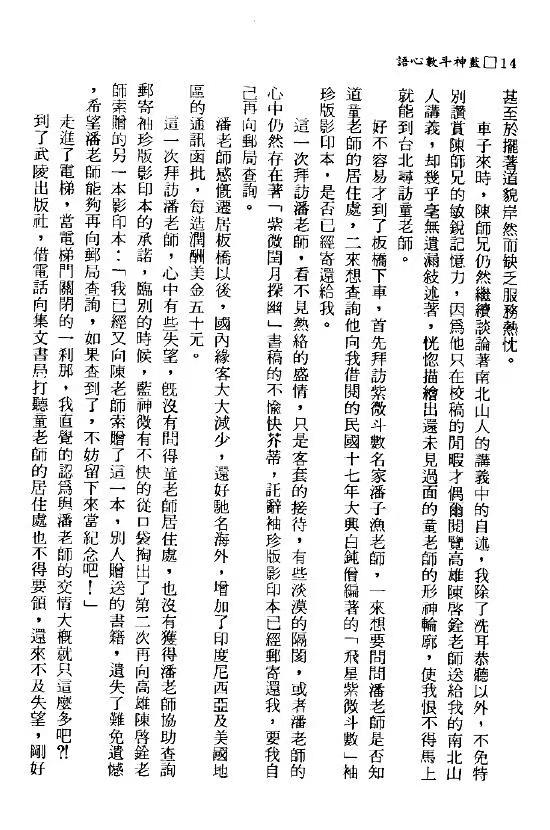 語心數斗神藍□14
甚至於擺著道貌岸然而缺乏服務熱忱。
車子來時，陳師兄仍然繼續談論著南北山人的講義中的自述，我除了洗耳恭聽以外，不免特
別讚賞陳師兄的敏銳記憶力，因爲他只在校稿的閒暇才偶爾閱覽高雄陳啓銓老師送給我的南北山
人講義，却幾乎毫無遺漏敍述著，恍惚描繪出還未見過面的童老師的形神輪廓，使我恨不得馬上
就能到台北尋訪童老師。
好不容易才到了板橋下車，首先拜訪紫微斗數名家潘子漁老師，一來想要問問潘老師是否知
道童老師的居住處，二來想查詢他向我借閱的民國十七年大興白鈍僧編著的「飛星紫微斗數」袖
珍版影印本，是否已經寄還給我。
這一次拜訪潘老師，看不見熱絡的盛情，只是客套的接待，有些淡漠的隔閡，或者潘老師的
心中仍然存在著「紫微閏月探幽」書稿的不愉快芥蒂，託辭袖珍版影印本已經郵寄還我，要我自
己再向郵局查詢。
潘老師感慨遷居板橋以後，國內緣客大大減少，還好馳名海外，增加了印度尼西亞及美國地
區的通訊函批，每造潤酬美金五十元。
這一次拜訪潘老師，心中有些失望，旣沒有問得童老師居住處，也沒有獲得潘老師協助查詢
郵寄袖珍版影印本的承諾，臨別的時候，藍神微有不快的從口袋掏出了第二次再向高雄陳啓銓老
師索贈的另一本影印本：「我已經又向陳老師索贈了這一本，別人贈送的書籍，遺失了難免遺憾
，希望潘老師能夠再向郵局查詢，如果查到了，不妨留下來當紀念吧！」
走進了電梯，當電梯門關閉的一刹那，我直覺的認爲與潘老師的交情大概就只這麼多吧?!
到了武陵出版社，借電話向集文書局打聽童老師的居住處也不得要領，還來不及失望，剛好